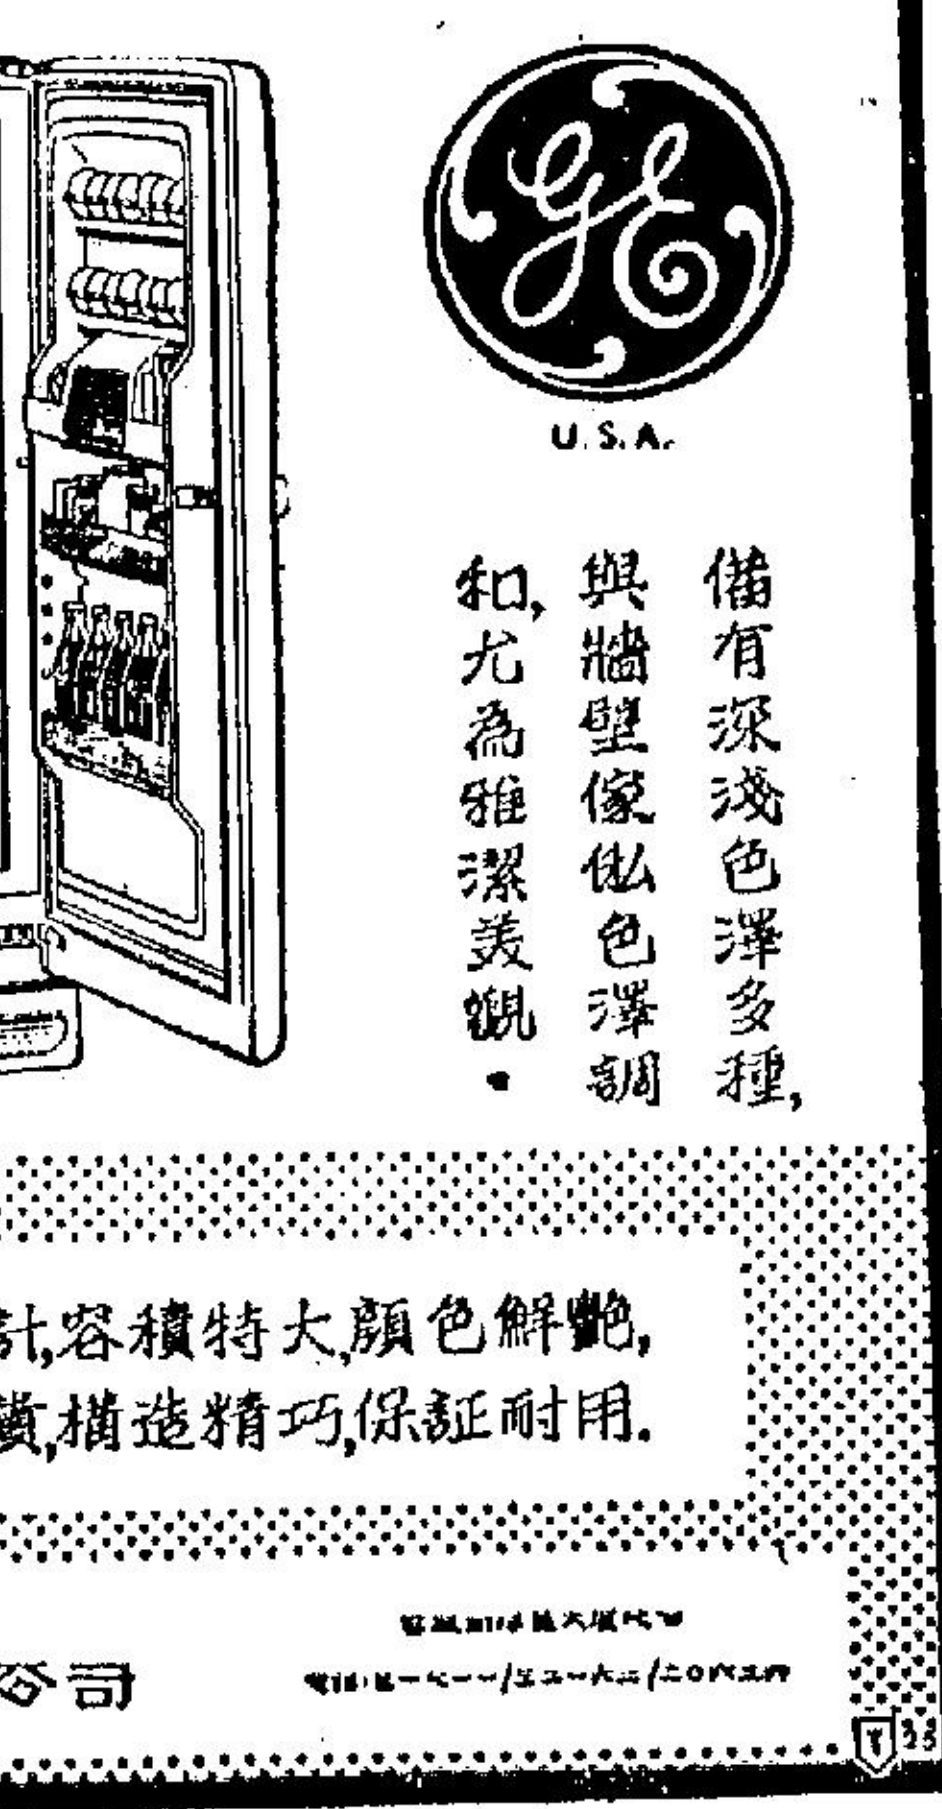 GE
U.S.A.
備有深淺色澤多種,
與牆壁傢俬色澤調
和,尤為雅潔美觀.
計,容積特大,顏色鮮艷,
構造精巧,保証耐用.
公司